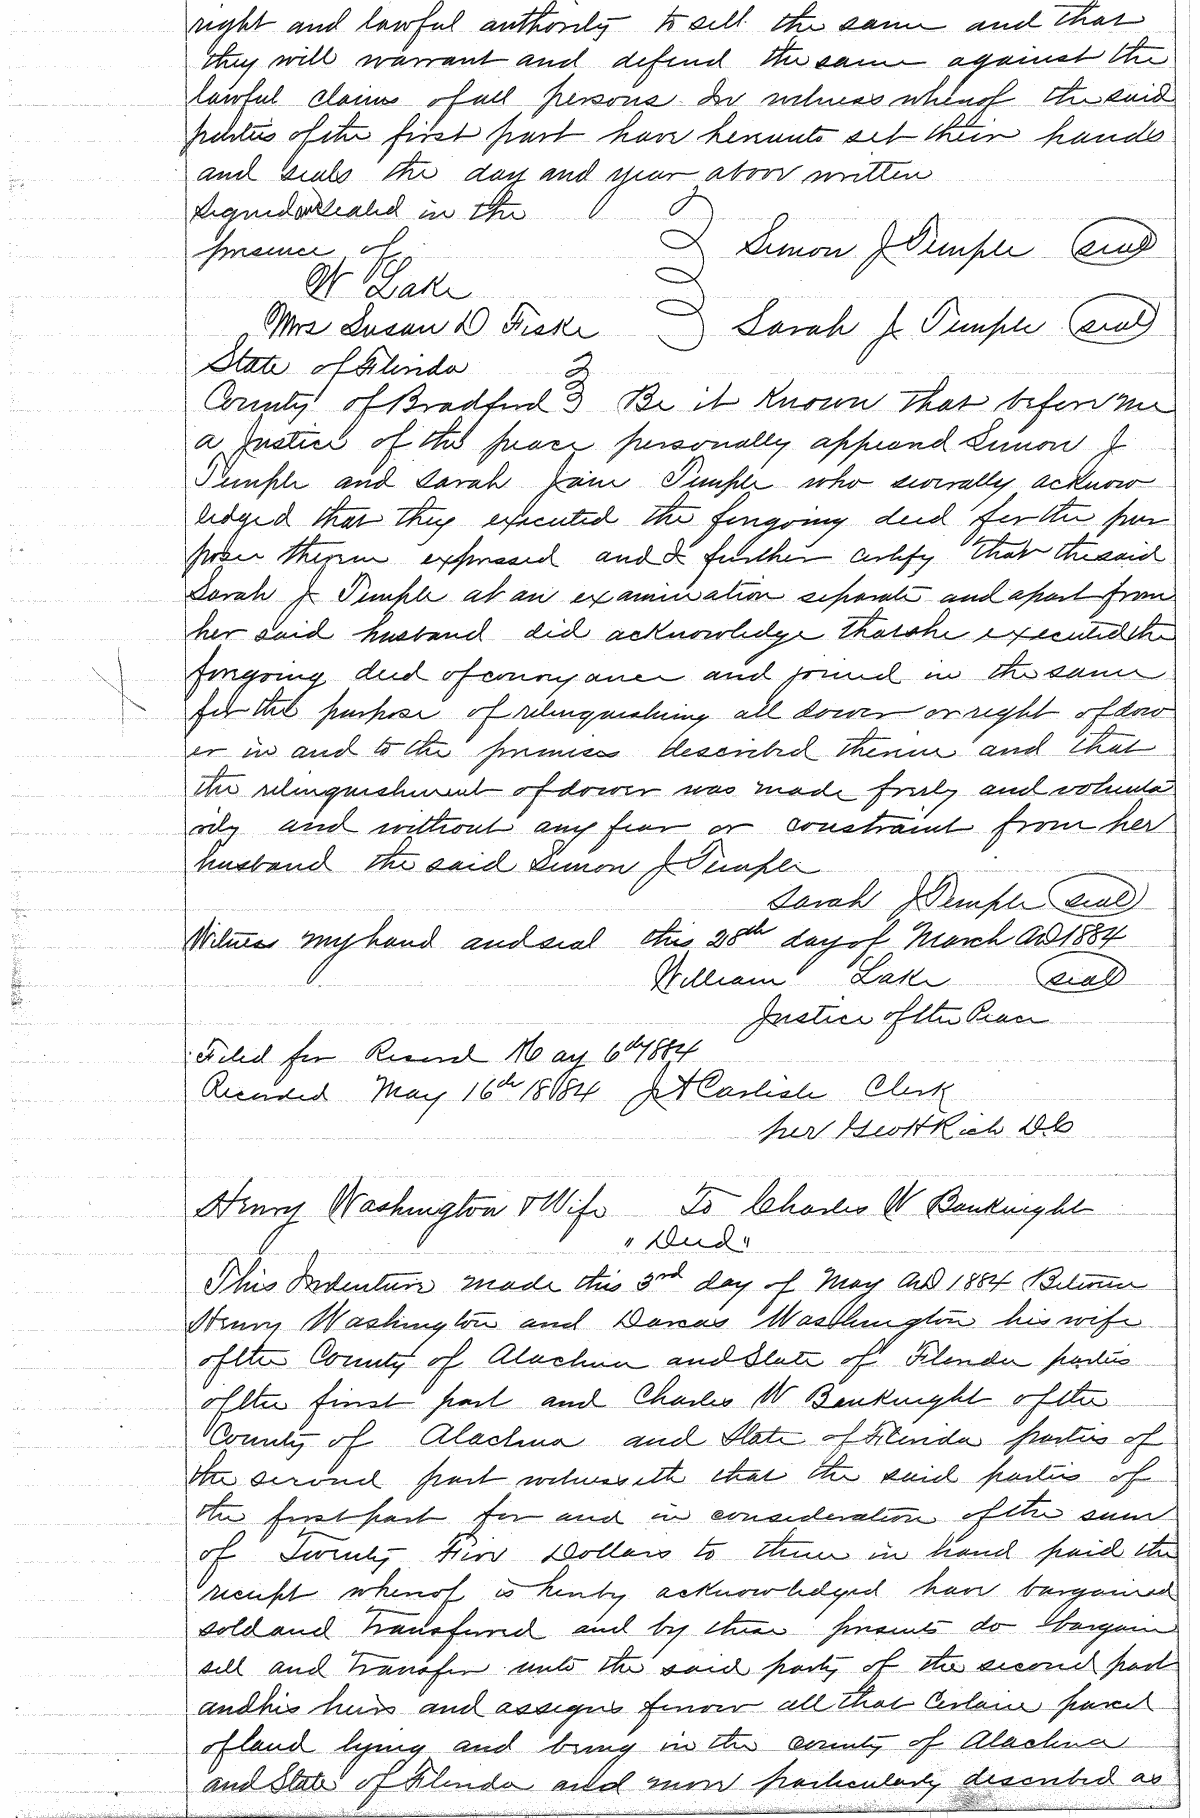 right and lawful authority to sell the same and that
they will warrant and defend the same against the
lawful claims of all persons In witness whereof the said
parties of the first part have hereunto set their hands
and seals the day and year above written
Signed & Sealed in the
presence of
Simon J Temple seal
W Lake
Mrs Susan D Fiske Sarah J Temple seal
State of Florida
County of Bradford Be it Known that before me
a Justice of the peace personally appeard Simon J
Temple and Sarah Jane Temple who severally acknow
ledged that they executed the foregoing deed for the pur
poses therein expressed and I further certify that the said
Sarah J Temple at an examination separate and apart from
her said husband did acknowledge that she executed the
foregoing deed of conveyance and joined in the same
for the purpose of relinquishing all dower or right of dow
er in and to the premises described therein and that
the relinquishment of dower was made freely and volunta
rily and without any fear or constraint from her
husband the said Simon J Temple
Sarah J Temple seal
Witness my hand and seal this 28th day of March AD 1884
William Lake seal
Justice of the Peace
Filed for Record May 6th 1884
Recorded May 16th 1884 J A Carlisle Clerk
per Geo H Rich D.C
Henry Washington & Wife To Charles W Bouknight
"Deed"
This Indenture made this 3rd day of May AD 1884 Between
Henry Washington and Darcas Washington his wife
of the County of Alachua and State of Florida parties
of the first part and Charles W Bouknight of the
County of Alachua and State of Florida parties of
the second part witnesseth that the said parties of
the first part for and in consideration of the sum
of Twenty Five Dollars to them in hand paid the
receipt whereof is hereby acknowledged have bargained
sold and transferred and by these presents do bargain
sell and transfer unto the said party of the second part
and his heirs and assigns forever all that Certain parcel
of land lying and being in the county of Alachua
and State of Florida and more particularly described as